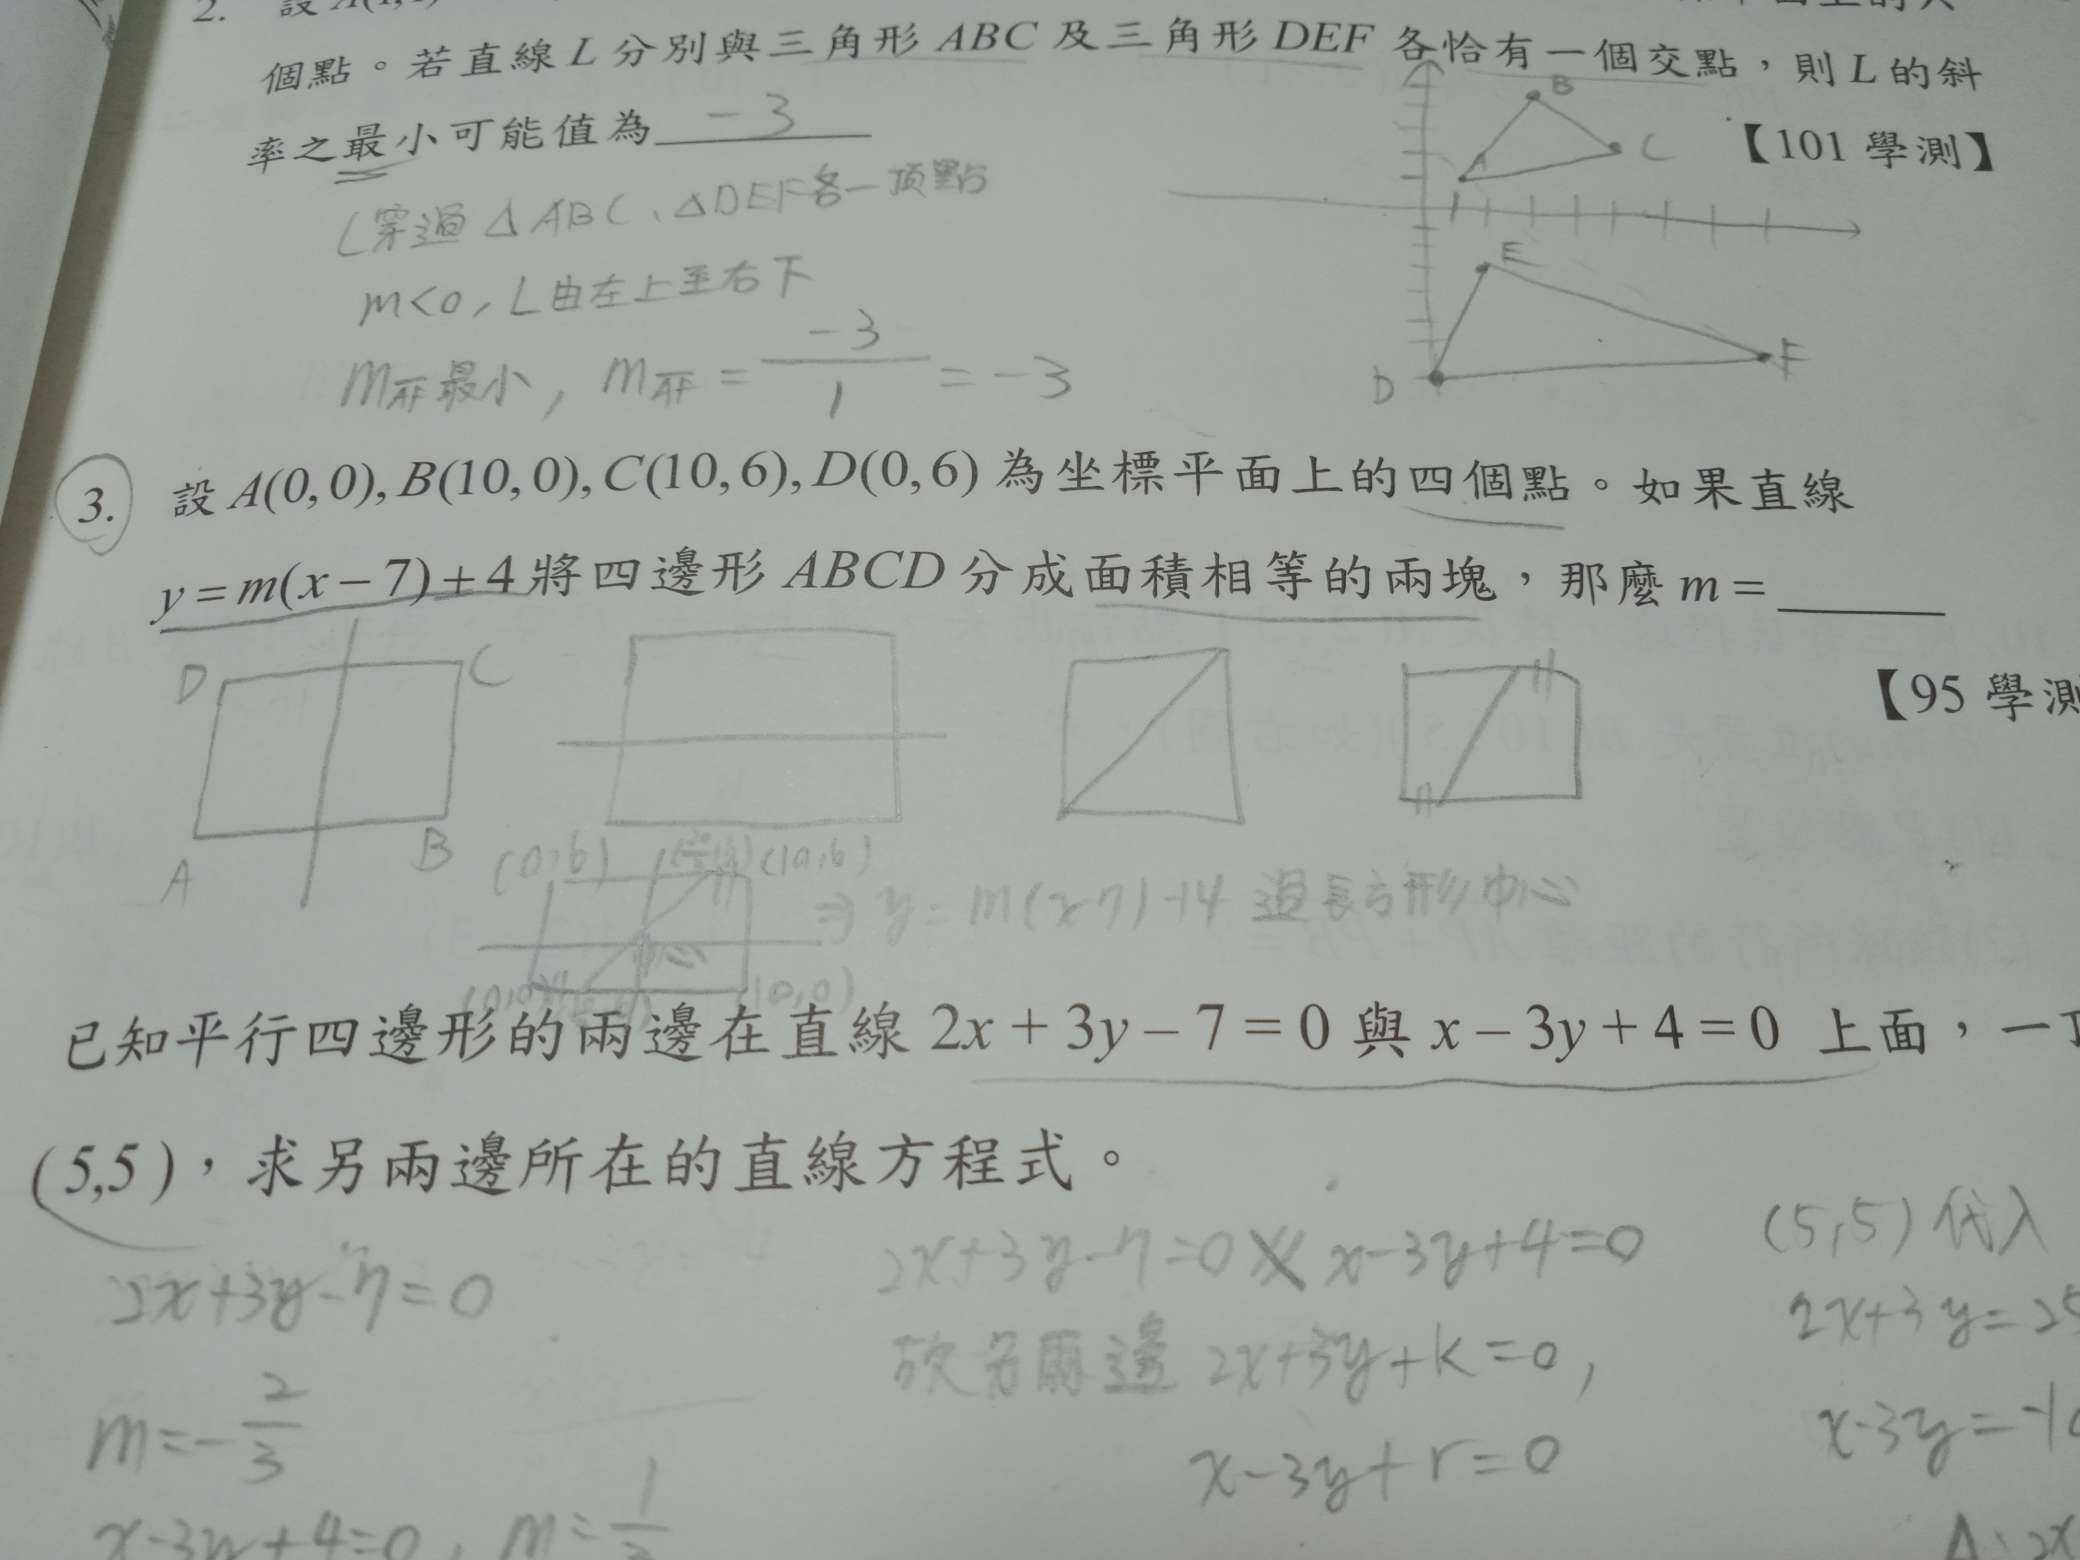 2. 設 A(1,1)
個點。若直線 L 分別與三角形 ABC 及三角形 DEF 各恰有一個交點，則 L 的斜
率之最小可能值為 -3 【101 學測】
B
A
C
E
D
F
L穿過 △ABC、△DEF各一頂點
m<0, L由左上至右下
m AF 最小, m AF = -3/1 = -3
3. 設 A(0,0), B(10,0), C(10,6), D(0,6) 為坐標平面上的四個點。如果直線
y = m(x-7)+4 將四邊形 ABCD 分成面積相等的兩塊，那麼 m = ______
【95 學測
D C
A B
(0,6) (10,6)
⇒ y = m(x-7)+4 過長方形中心
中心
(0,0) (10,0)
已知平行四邊形的兩邊在直線 2x + 3y – 7 = 0 與 x – 3y + 4 = 0 上面，一
(5,5)，求另兩邊所在的直線方程式。
2x+3y-7=0
m=-2/3
x-3y+4=0, m=1/3
2x+3y-7=0 ∦ x-3y+4=0
故另兩邊 2x+3y+k=0,
x-3y+r=0
(5,5) 代入
2x+3y=25
x-3y=-10